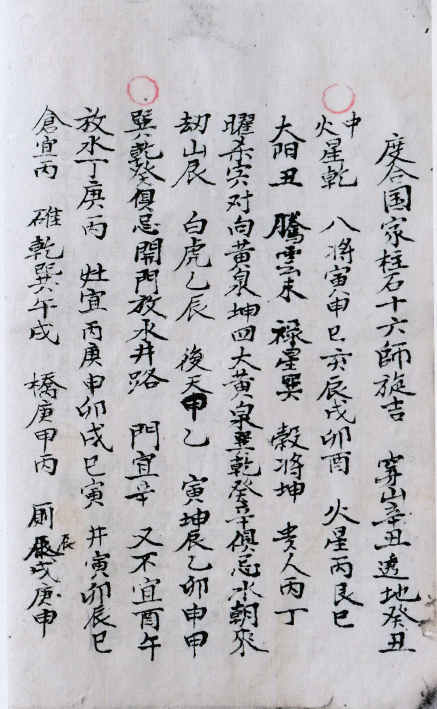 度合国家柱石十六師旋吉　穿山辛丑透地癸丑
中火星乾　八将寅申巳亥辰戌卯酉　火星丙艮巳
太阳丑　騰雲未　祿星巽　穀将坤　貴人丙丁
曜杀寅对向黃泉坤四大黃泉巽乾癸辛俱忌水朝來
劫山辰　白虎乙辰　後天甲乙　寅坤辰乙卯申甲
巽乾癸俱忌開門放水井路　門宜辛　又不宜酉午
放水丁庚丙　灶宜丙庚申卯戌巳寅　井寅卯辰巳
倉宜丙　碓乾巽午戌　橋庚甲丙　厠辰戌庚申